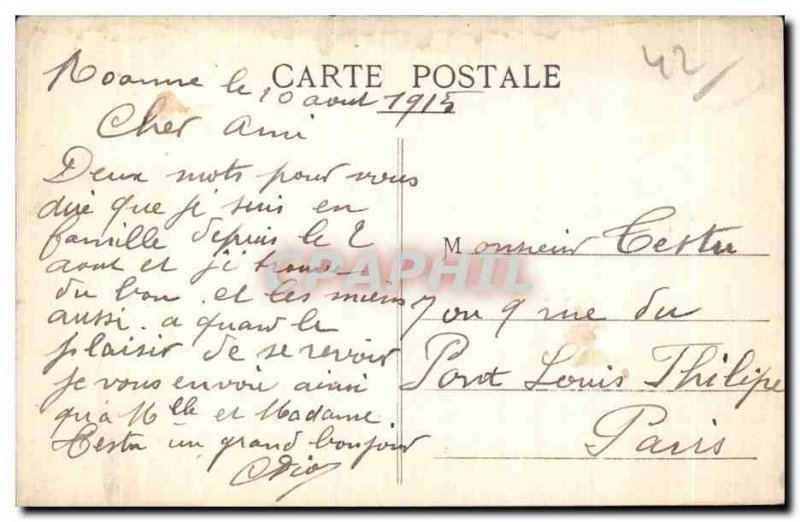 42
CARTE POSTALE
Roanne le 10 aout 1915
Cher Ami
Deux mots pour vous
dire que je suis en
famille depuis le 2
aout et j'i trouve
du bon. et les miens
aussi. a quand le
plaisir de se revoir
je vous envoie ainsi
qu'a Mlle et Madame
Testu un grand bonjour
Monsieur Testu
7 ou 9 rue du
Pont Louis Philipe
Paris
CPAPHIL